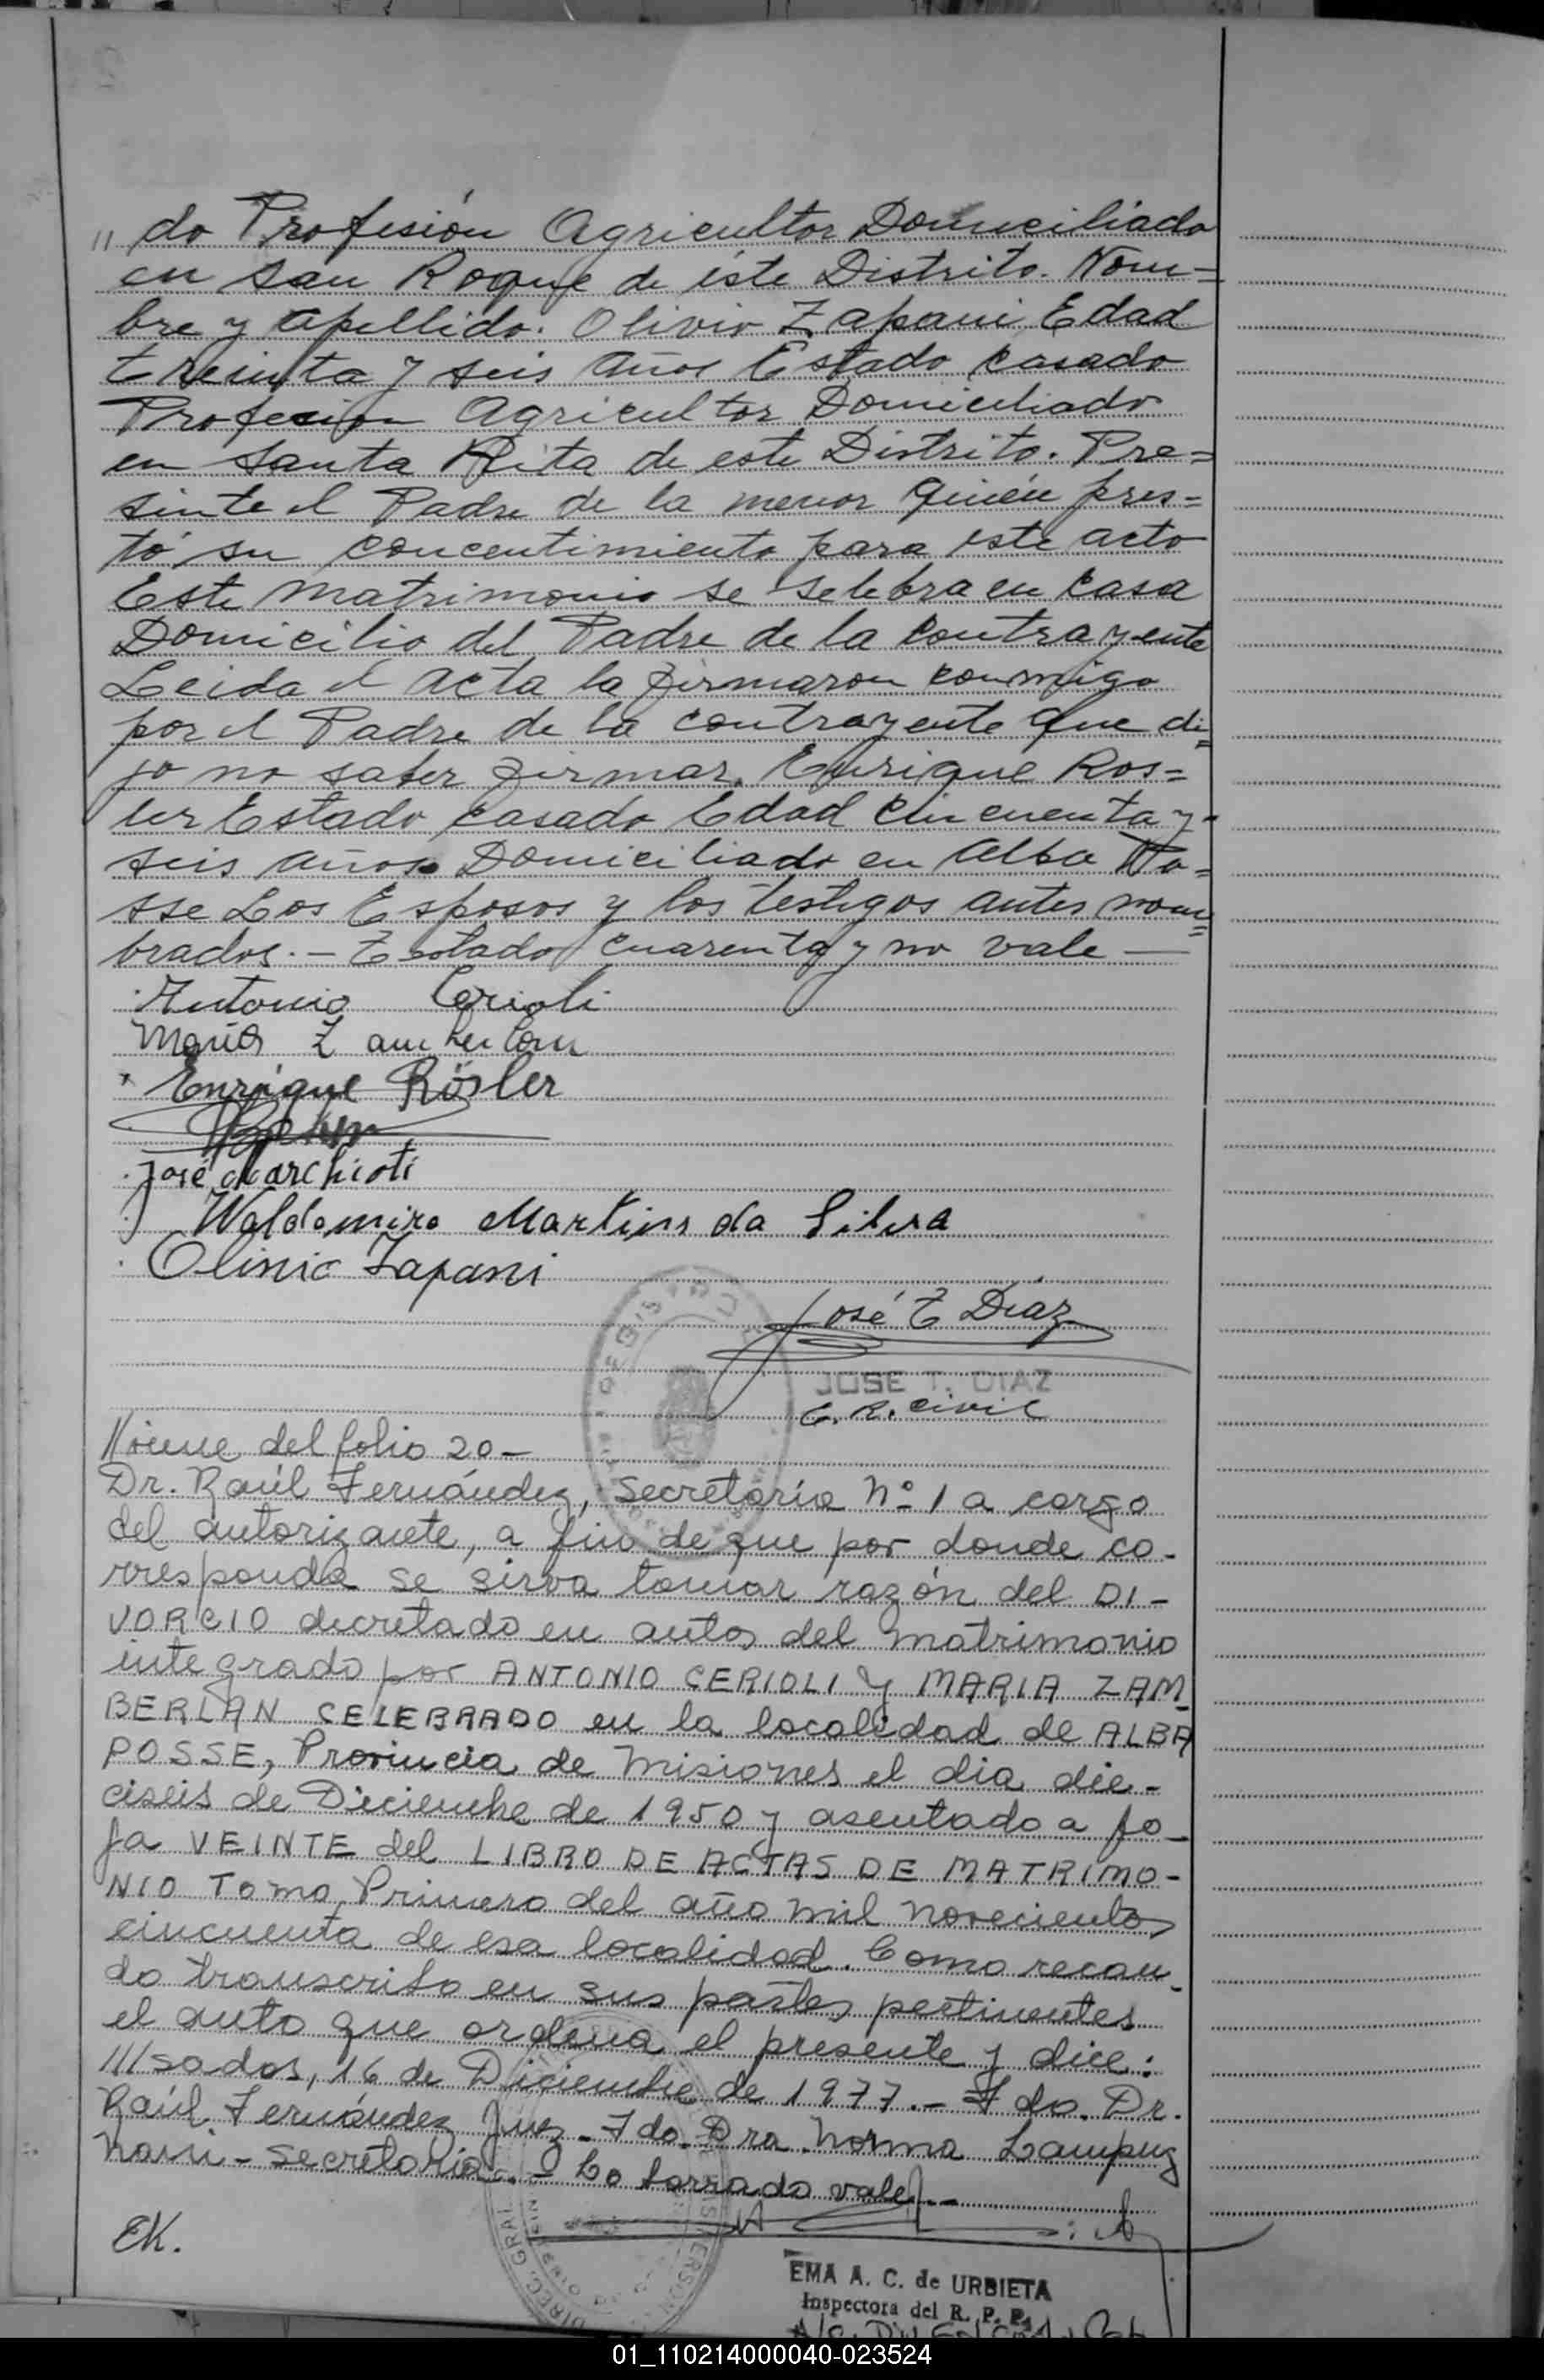 " do Profesión Agricultor Domiciliado
en San Roque de éste Distrito. Nom=
bre y apellido. Olivio Zapani Edad
treinta y seis años Estado casado
Profecion Agricultor Domiciliado
en Santa Rita de este Distrito. Pre=
sente el Padre de la menor quién pres=
tó su concentimiento para este acto
Este matrimonio se selebra en casa
Domicilio del Padre de la contrayente
Leida el acta la firmaron conmigo
por el Padre de la contrayente que di=
jo no saber firmar. Enrique Ros=
ler Estado casado Edad cincuenta y=
seis años Domiciliado en Alba Po=
sse Los Esposos y los testigos antes nom=
brados.- Testado cuarenta y no vale —
Antonio Cerioli
Maria Zamberlan
Enrique Rösler
José Marchioti
Waldomiro Martins da Silva
Olinio Zapani
José T Díaz
JOSE T. DIAZ
E. R. Civil
//viene del folio 20-
Dr. Raúl Fernández, Secretaría Nº 1 a cargo
del autorizante, a fin de que por donde co-
rresponda se sirva tomar razón del DI-
VORCIO decretado en autos del matrimonio
integrado por ANTONIO CERIOLI y MARIA ZAM-
BERLAN CELEBRADO en la localidad de ALBA
POSSE, Provincia de Misiones el dia die-
ciseis de Diciembre de 1950 y asentado a fo-
ja VEINTE del LIBRO DE ACTAS DE MATRIMO-
NIO Tomo Primero del año mil novecientos
cincuenta de esa localidad. Como recau-
do transcribo en sus partes pertinentes
el auto que ordena el presente y dice:
///sadas, 16 de Diciembre de 1977.- Fdo. Dr.
Raúl Fernández Juez - Fdo. Dra. Norma
Nani - Secretaria. - Co borrado vale.-
EK.
EMA A. C. de URBIETA
Inspectora del R. P. P.